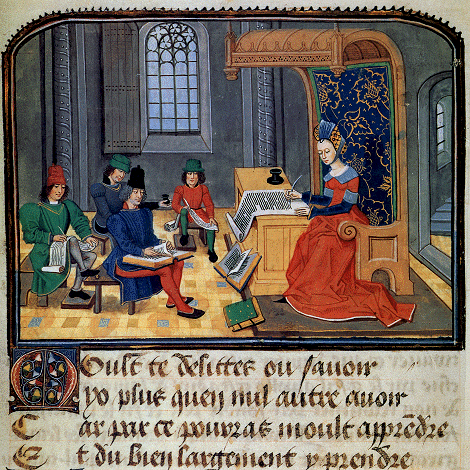 te delittes ou sauoir
plus quen nul autre auoir
Car par ce pourras moult apprendre
Et du bien largement y prendre